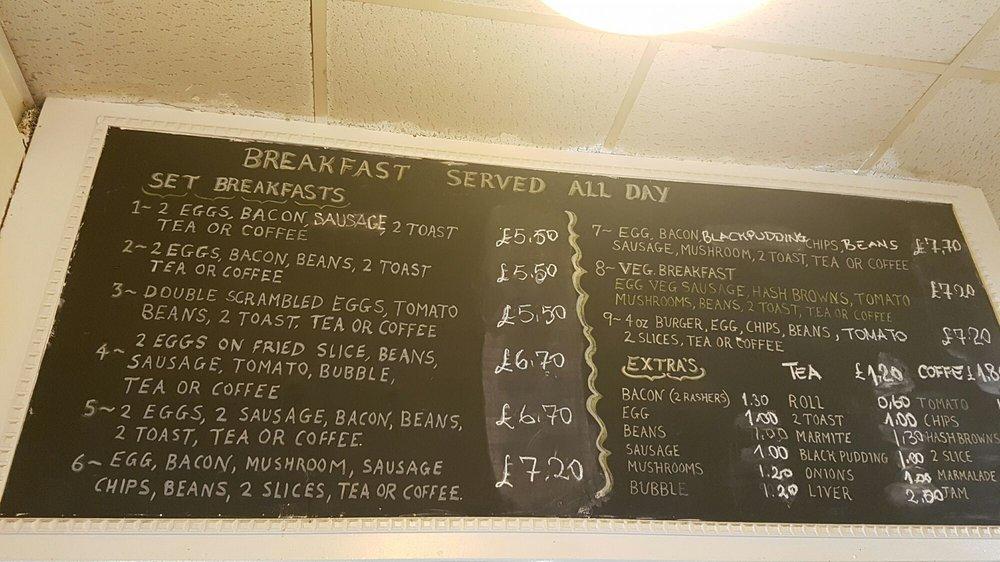 BREAKFAST SERVED ALL DAY
SET BREAKFASTS
1~ 2 EGGS, BACON, SAUSAGE, 2 TOAST
TEA OR COFFEE £5.50
2~ 2 EGGS, BACON, BEANS, 2 TOAST
TEA OR COFFEE £5.50
3~ DOUBLE SCRAMBLED EGGS, TOMATO
BEANS, 2 TOAST, TEA OR COFFEE £5.50
4~ 2 EGGS ON FRIED SLICE, BEANS,
SAUSAGE, TOMATO, BUBBLE, £6.70
TEA OR COFFEE
5~ 2 EGGS, 2 SAUSAGE, BACON, BEANS, £6.70
2 TOAST, TEA OR COFFEE.
6~ EGG, BACON, MUSHROOM, SAUSAGE £7.20
CHIPS, BEANS, 2 SLICES, TEA OR COFFEE.
7~ EGG, BACON, BLACKPUDDING, CHIPS, BEANS £7.70
SAUSAGE, MUSHROOM, 2 TOAST, TEA OR COFFEE
8~ VEG. BREAKFAST
EGG VEG SAUSAGE, HASH BROWNS, TOMATO £7.20
MUSHROOMS, BEANS, 2 TOAST, TEA OR COFFEE
9~ 4oz BURGER, EGG, CHIPS, BEANS, TOMATO £7.20
2 SLICES, TEA OR COFFEE
EXTRA'S TEA £1.20 COFFE £1.8
BACON (2 RASHERS) 1.30 ROLL 0.60 TOMATO
EGG 1.00 2 TOAST 1.00 CHIPS
BEANS 1.00 MARMITE 1.30 HASH BROWNS
SAUSAGE 1.00 BLACK PUDDING 1.00 2 SLICE
MUSHROOMS 1.20 ONIONS 1.00 MARMALADE
BUBBLE 1.20 LIVER 2.50 JAM